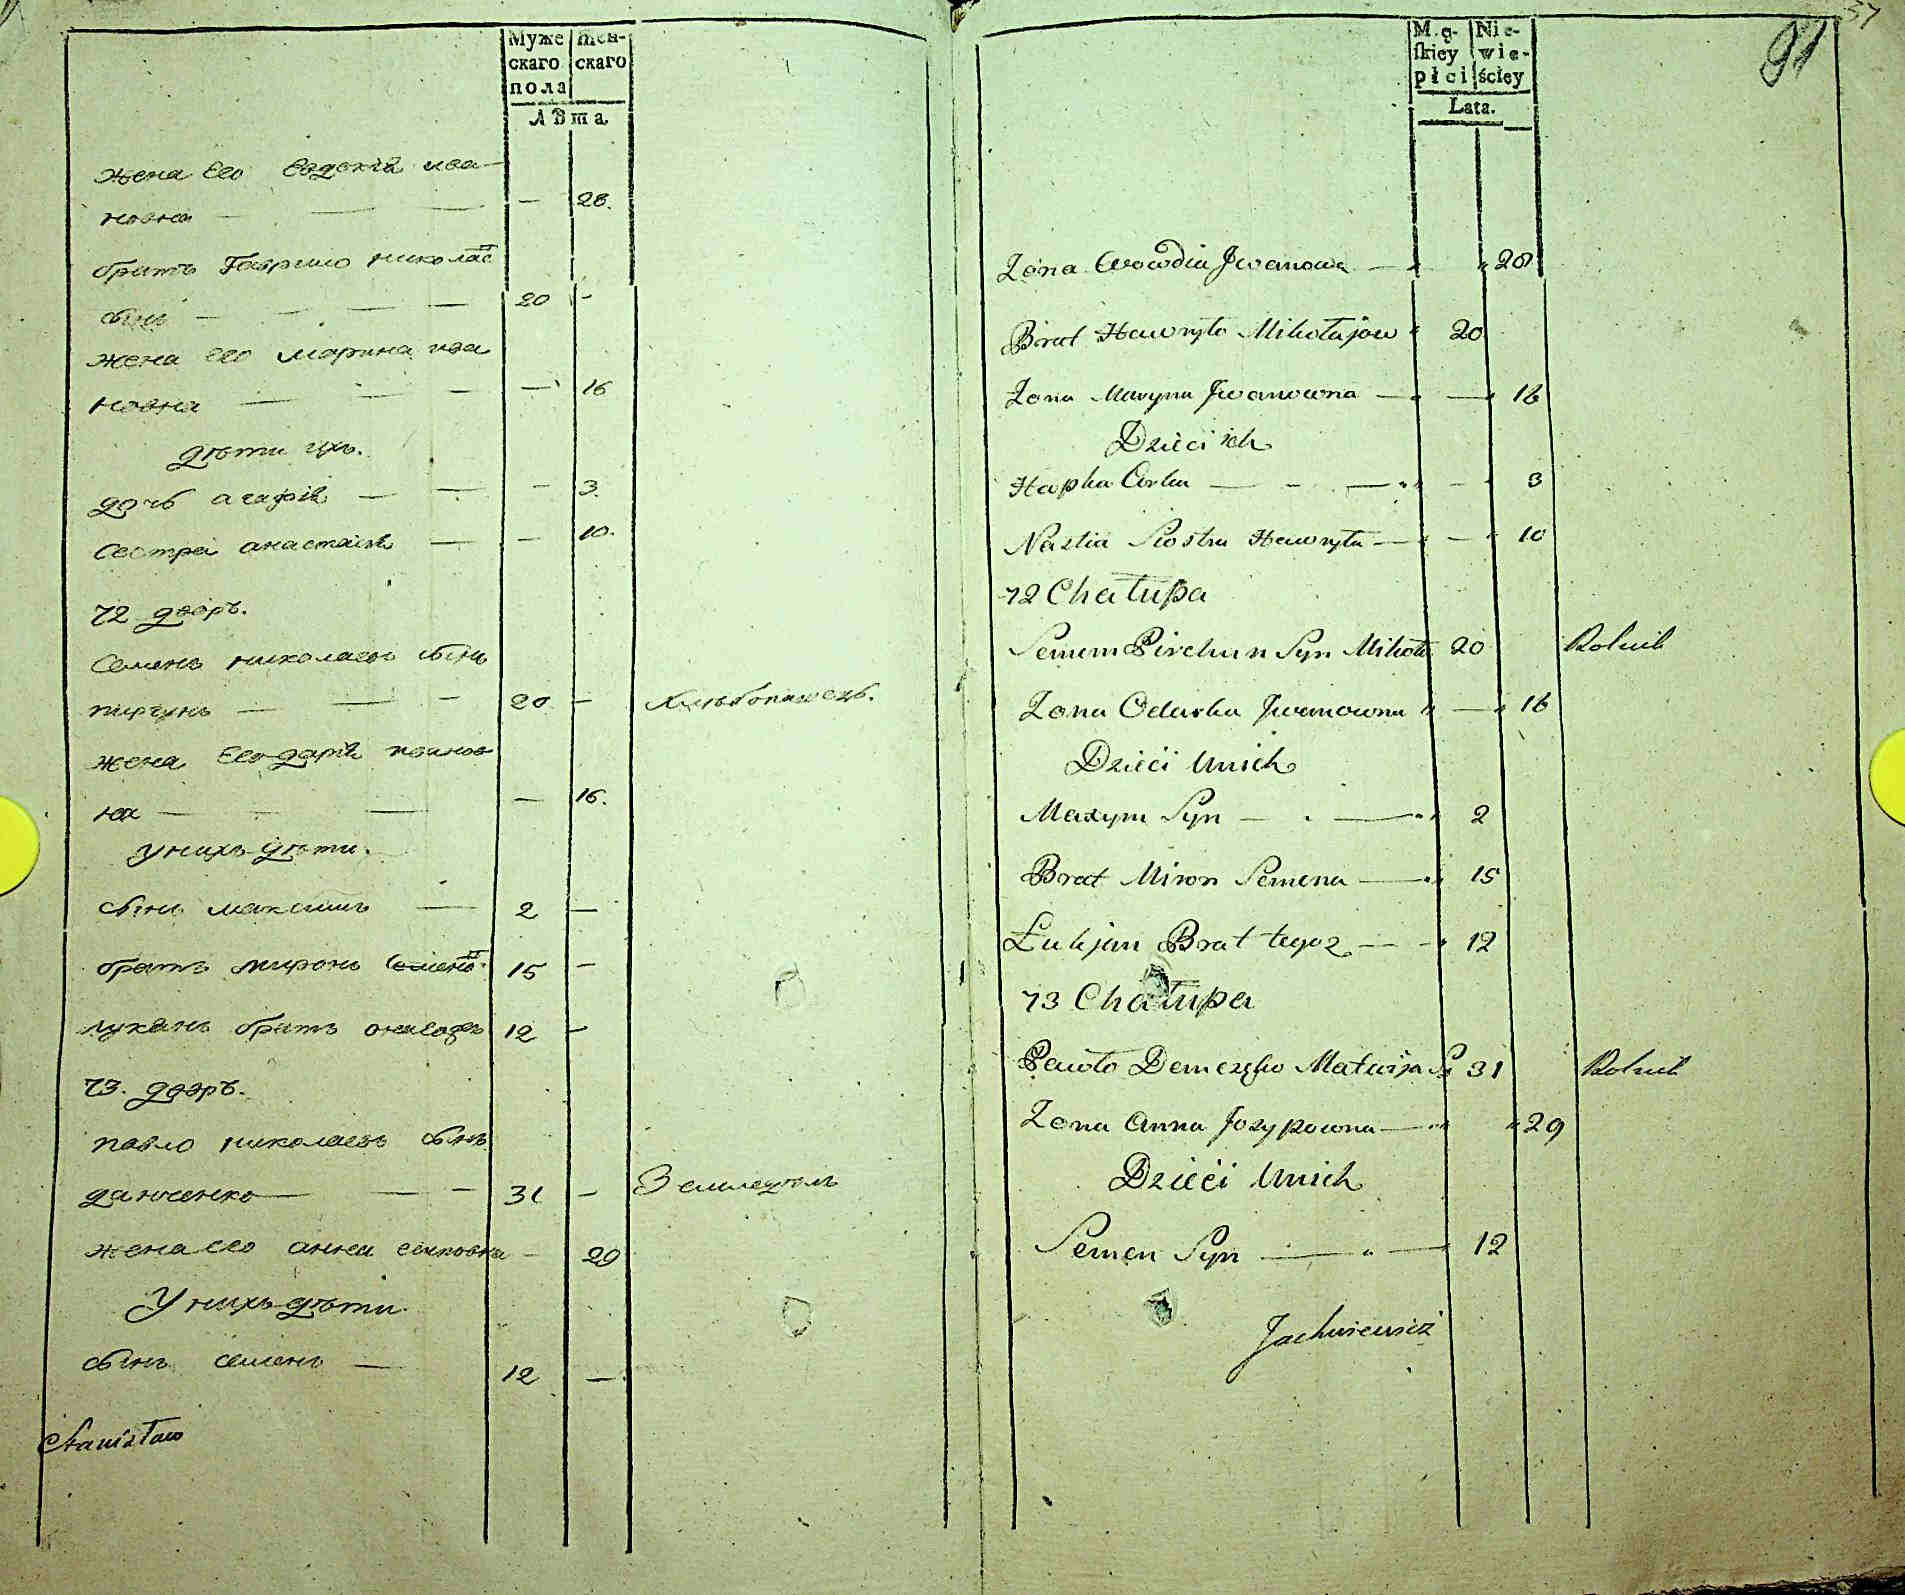 Муже скаго пола
жен- скаго
Лѣта
жена его Евдокія ива
новна — 28.
братъ Гаврило николаевъ
сынъ 20 —
жена его марина ива
новна — 16
дѣти ихъ.
дочь агафія — 3.
Сестра анастасія — 10.
72 дворъ.
Семенъ николаевъ сынъ
пирчунъ 20 — Хлѣбопашецъ.
жена его дарія иванов
на — 16.
У нихъ дѣти.
сынъ максимъ 2 —
братъ миронъ Семенов 15 —
лукянъ братъ 12 —
73. дворъ.
павло николаевъ сынъ
31 — Земледѣлъ
жена его анна — 29
У нихъ дѣти.
сынъ семенъ 12 —
Stanisław
91
57
Mę- skiey płci
Nie- wie- ściey
Lata.
Żona Ewwdia Jwanowa 28
Brat Hawryło Mikołajow 20
Żona Maryna Jwanowna — 16
Dzieci ich
Hapka Corka — 3
Nastia Siostra Hawryła — 10
72 Chałupa
Semem Pirchun Syn Mikoła 20 Rolnik
Żona Odarka Jwanowna — 16
Dzieci Unich
Maxym Syn 2
Brat Miron Semena 15
Łukjan Brat tegoz 12
73 Chałupa
Pawło Demczęko Matwija S 31 Rolnik
Żona Anna Jozypowna 29
Dzieci Unich
Semen Syn 12
Jachniewicz